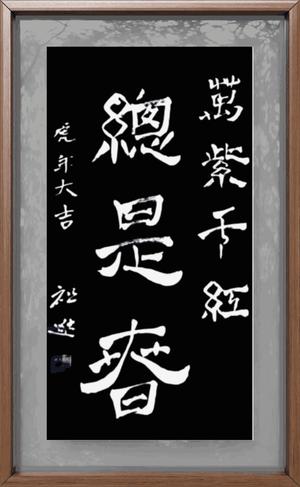 萬紫千紅
總是春
虎年大吉